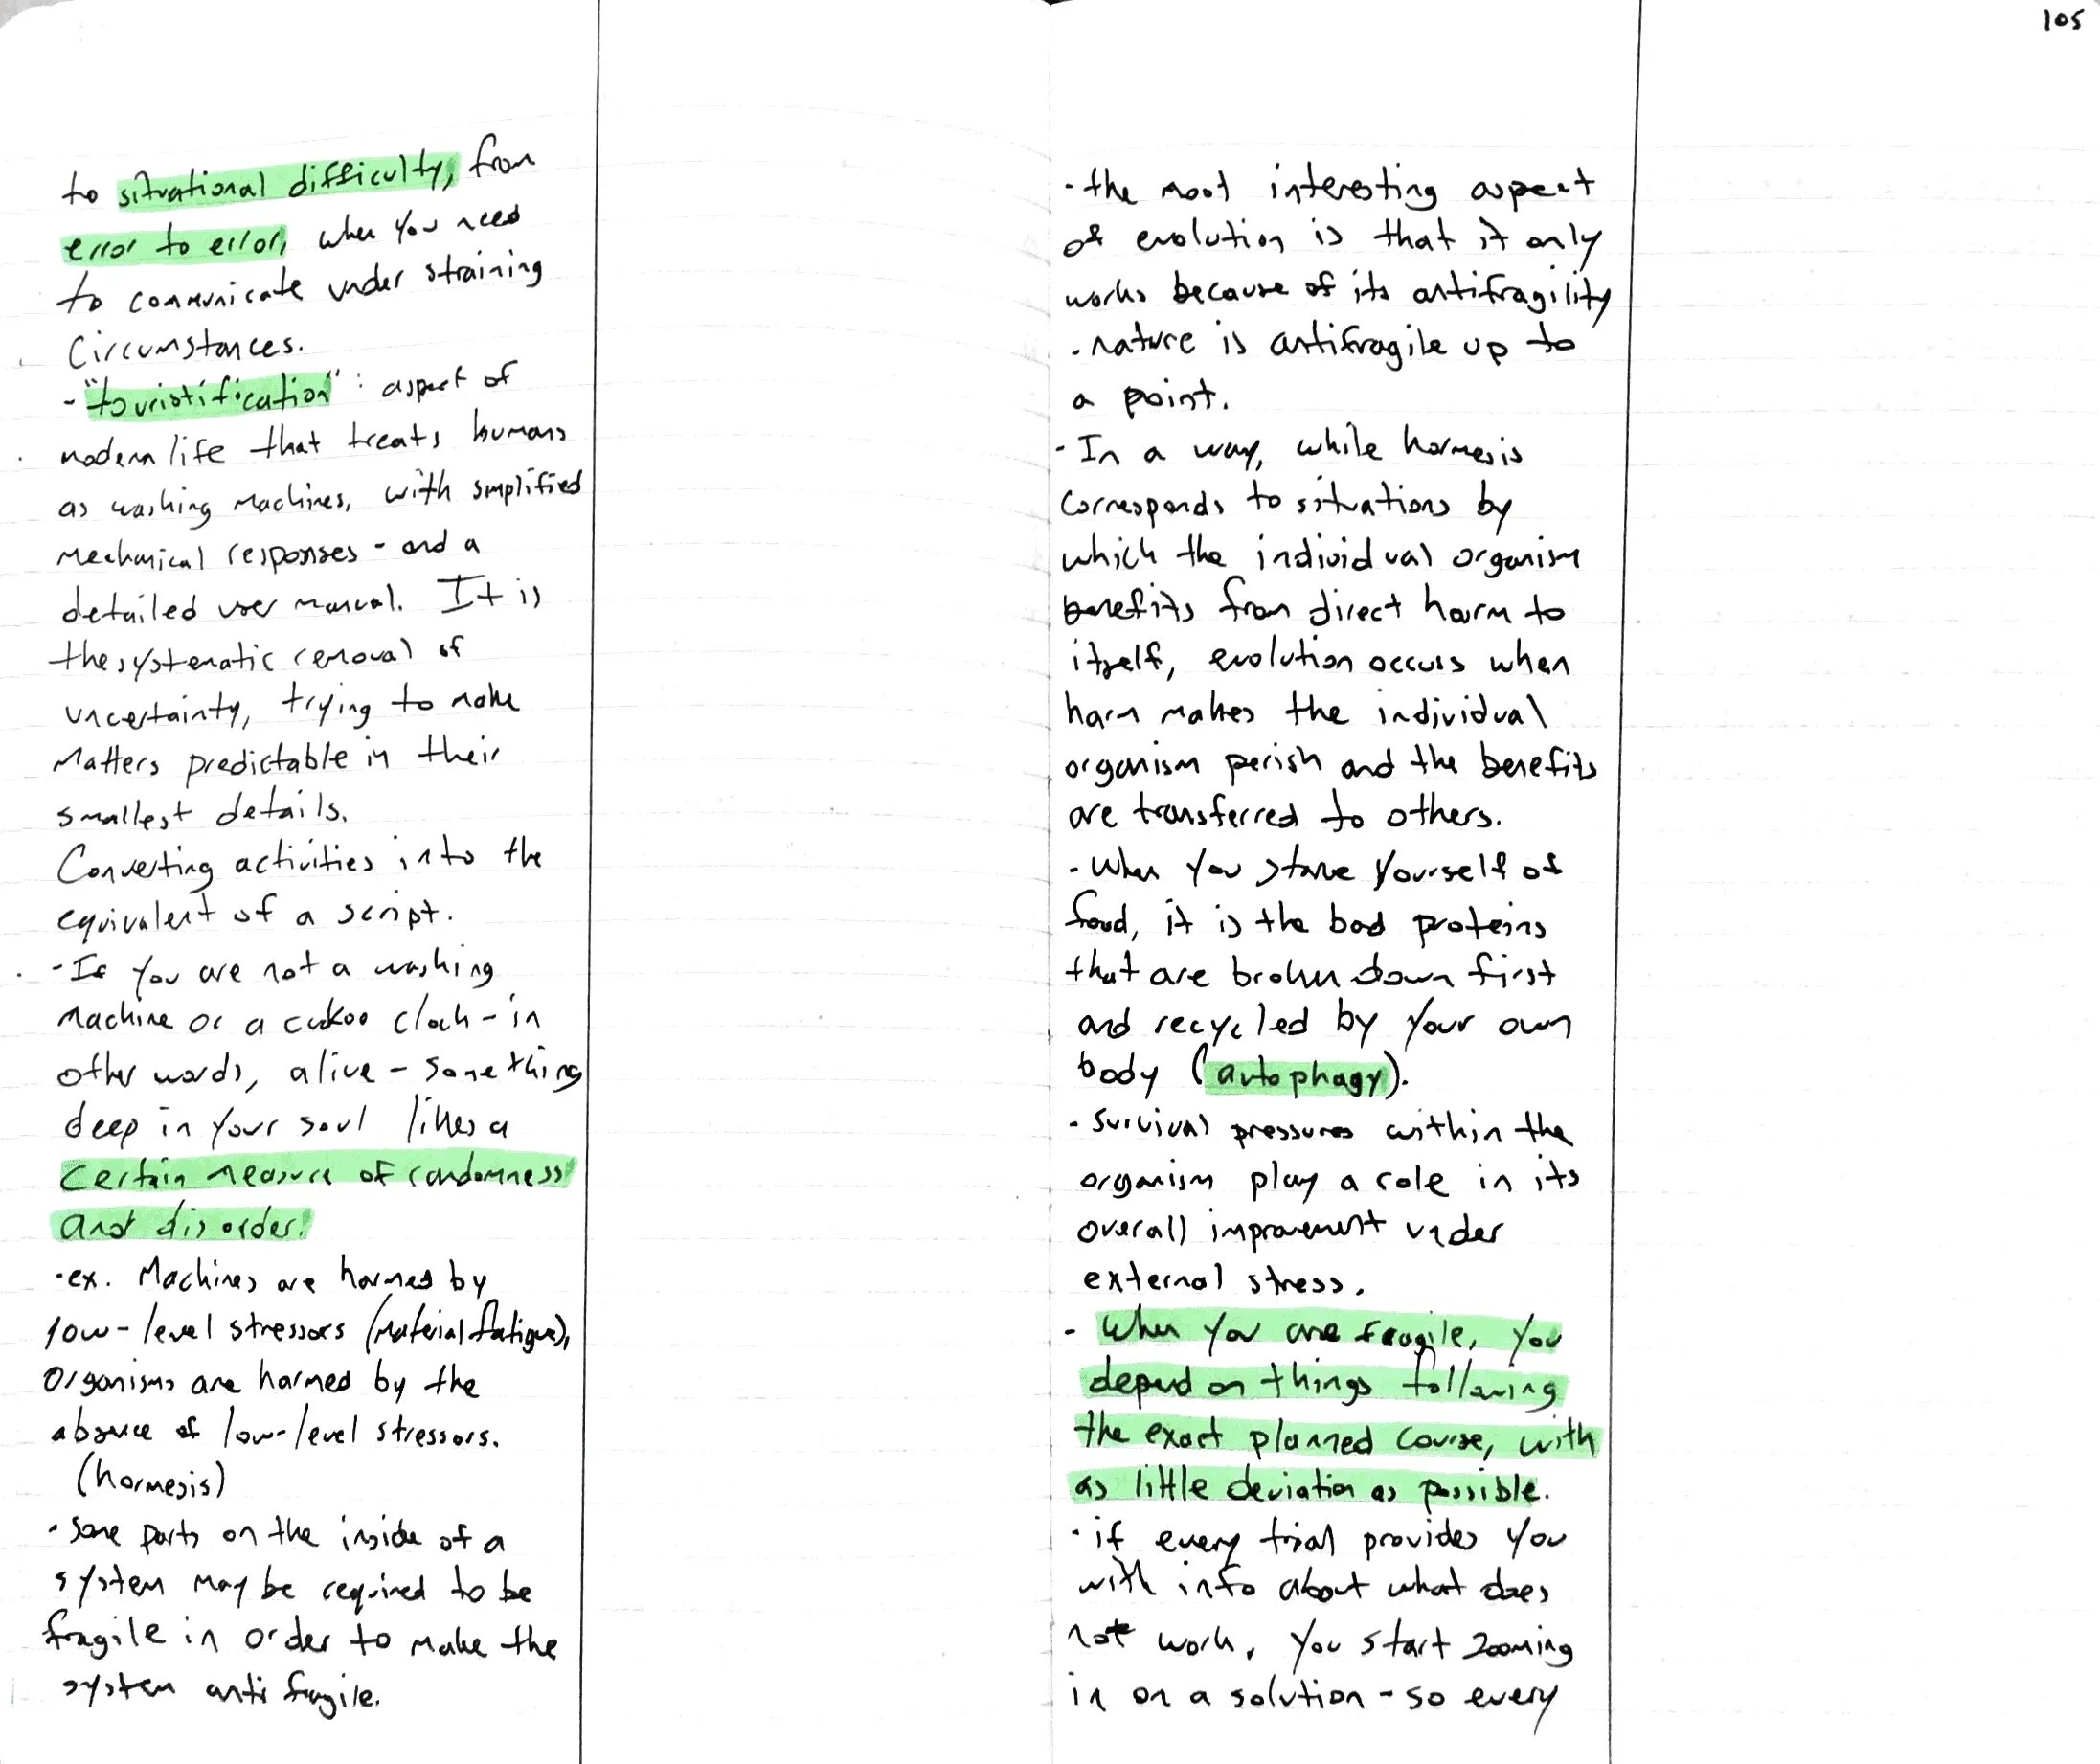 to situational difficulty, from
error to error, when you need
to communicate under straining
circumstances.
- "touristification" : aspect of
modern life that treats humans
as washing machines, with simplified
mechanical responses - and a
detailed user manual. It is
the systematic removal of
uncertainty, trying to make
matters predictable in their
smallest details.
Converting activities into the
equivalent of a script.
- If you are not a washing
machine or a cukoo clock - in
other words, alive - something
deep in your soul likes a
certain measure of randomness
and disorder.
• ex. Machines are harmed by
low-level stressors (material fatigue),
organisms are harmed by the
absence of low-level stressors.
(hormesis)
• some parts on the inside of a
system may be required to be
fragile in order to make the
system antifragile.
105
• the most interesting aspect
of evolution is that it only
works because of its antifragility
• nature is antifragile up to
a point.
- In a way, while hormesis
corresponds to situations by
which the individual organism
benefits from direct harm to
itself, evolution occurs when
harm makes the individual
organism perish and the benefits
are transferred to others.
• When you starve yourself of
food, it is the bad proteins
that are broken down first
and recycled by your own
body (autophagy).
• survival pressures within the
organism play a role in its
overall improvement under
external stress.
- When you are fragile, you
depend on things following
the exact planned course, with
as little deviation as possible.
• if every trial provides you
with info about what does
not work, you start zooming
in on a solution - so every